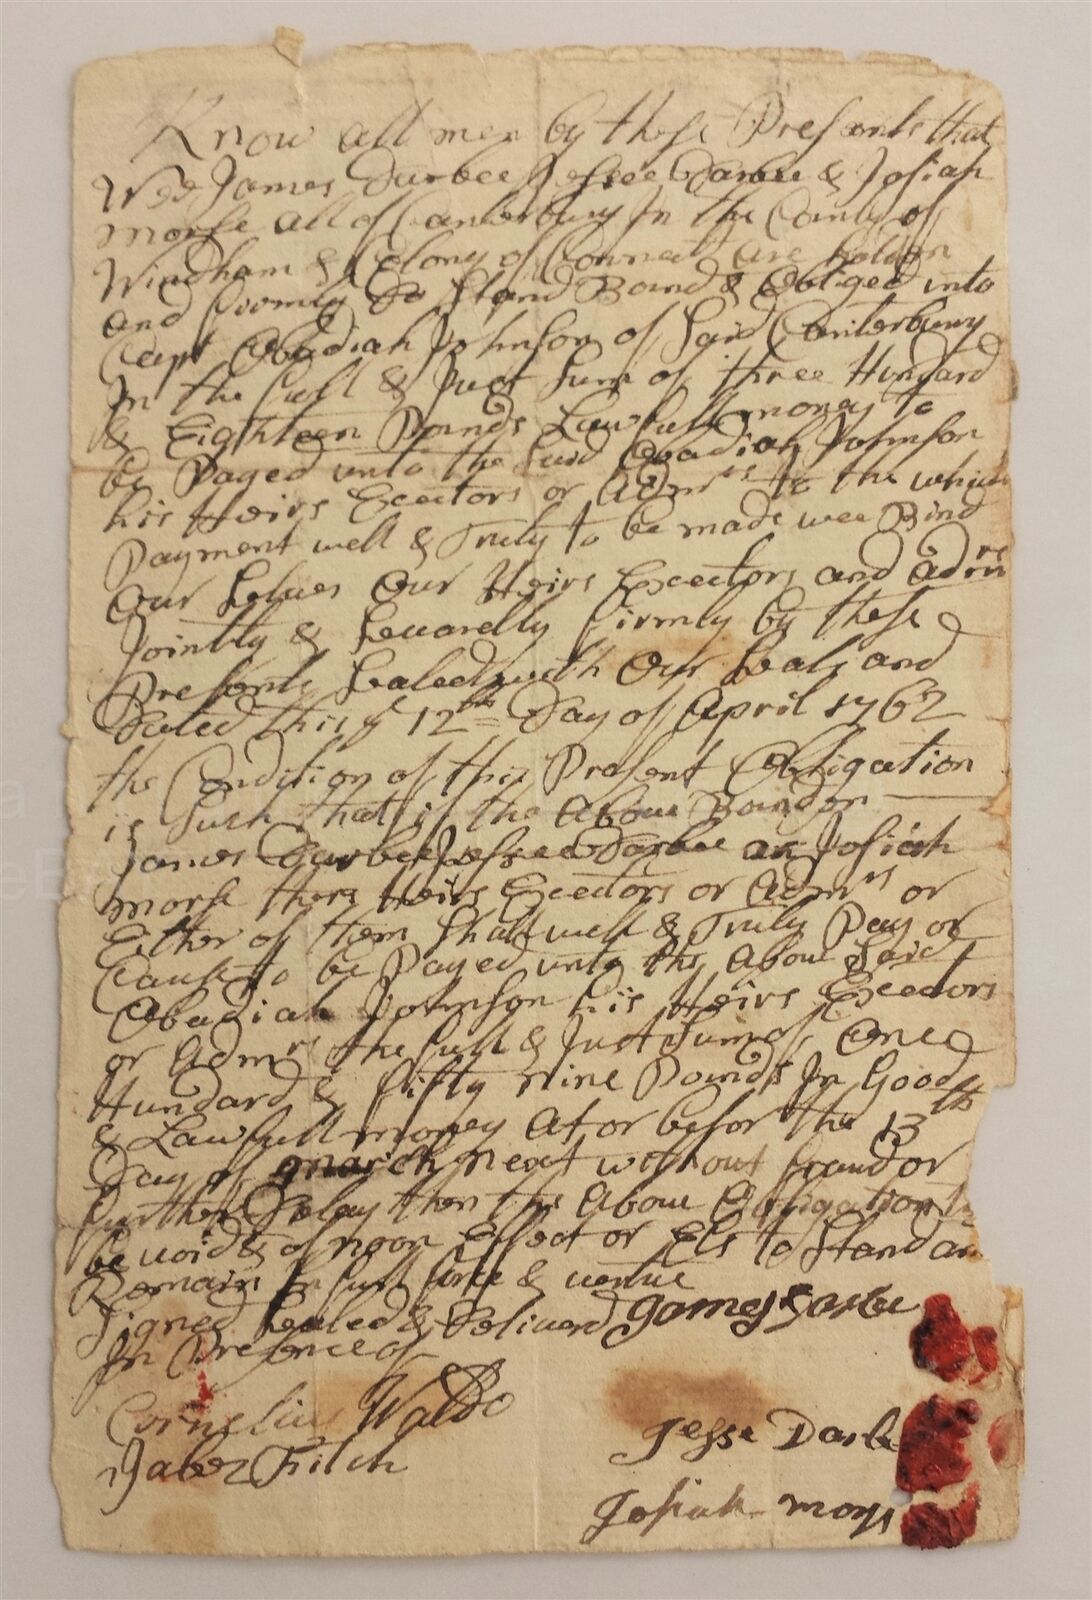 Know all men by these Presents that
Wee James Darbee Jessee Darbee & Josiah
Morse all of Canterbury In the County of
Windham & Colony of Connect are holden
and firmly do Stand Bound & Obliged unto
Capt Obadiah Johnson of Said Canterbury
In the full & Just Sum of three Hundard
& Eighteen Pounds Lawfull money to
be Payed unto the Said Obadiah Johnson
his Heirs Execttors or Admrs to the which
Payment well & Truly to be made wee Bind
Our Selves Our Heirs Execttors and admrs
Jointly & Seuarelly firmly by these
Presents Sealed with Our Seals and
Dated this ye 12th = Day of April 1762
the Condition of this Present Obligation
is Such that if the Aboue Bounden
James Darbee Jessee Darbee or Josiah
Morse thers Heirs Execttors or Admrs or
Either of them Shall well & Truly Pay or
Cause to be Payed unto the Aboue Said
Obadiah Johnson his Heirs Execttors
or Admrs the full & Just Sum of One
Hundard & fifty nine Pounds In Good
& Lawfull money At or befor the 13th
Day of march next without fraud or
further Delay then the Aboue Obligation to
be uoid & of noon Effect or Els to Stand an
Remain In full force & uertue
Signed Sealed & Deliuerd James Darbe
In Presence of
Cornelius Waldo
Jesse Darbe
Jabez Fitch
Josiah mors